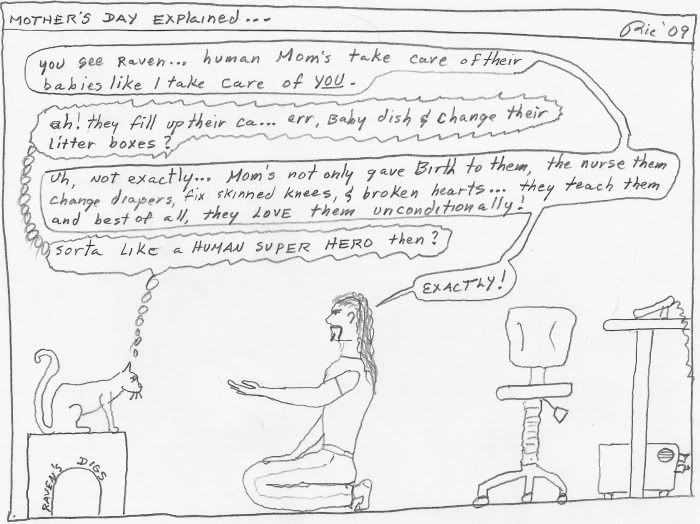 MOTHER'S DAY EXPLAINED...
Ric '09
you see Raven... human Mom's take care of their
babies like I take care of YOU.
ah! they fill up their ca... err, Baby dish & change their
litter boxes?
uh, not exactly... Mom's not only gave Birth to them, the nurse them
change diapers, fix skinned knees, & broken hearts... they teach them
and best of all, they LOVE them unconditionally!
sorta LIKE a HUMAN SUPER HERO then?
EXACTLY!
RAVEN'S DIGS